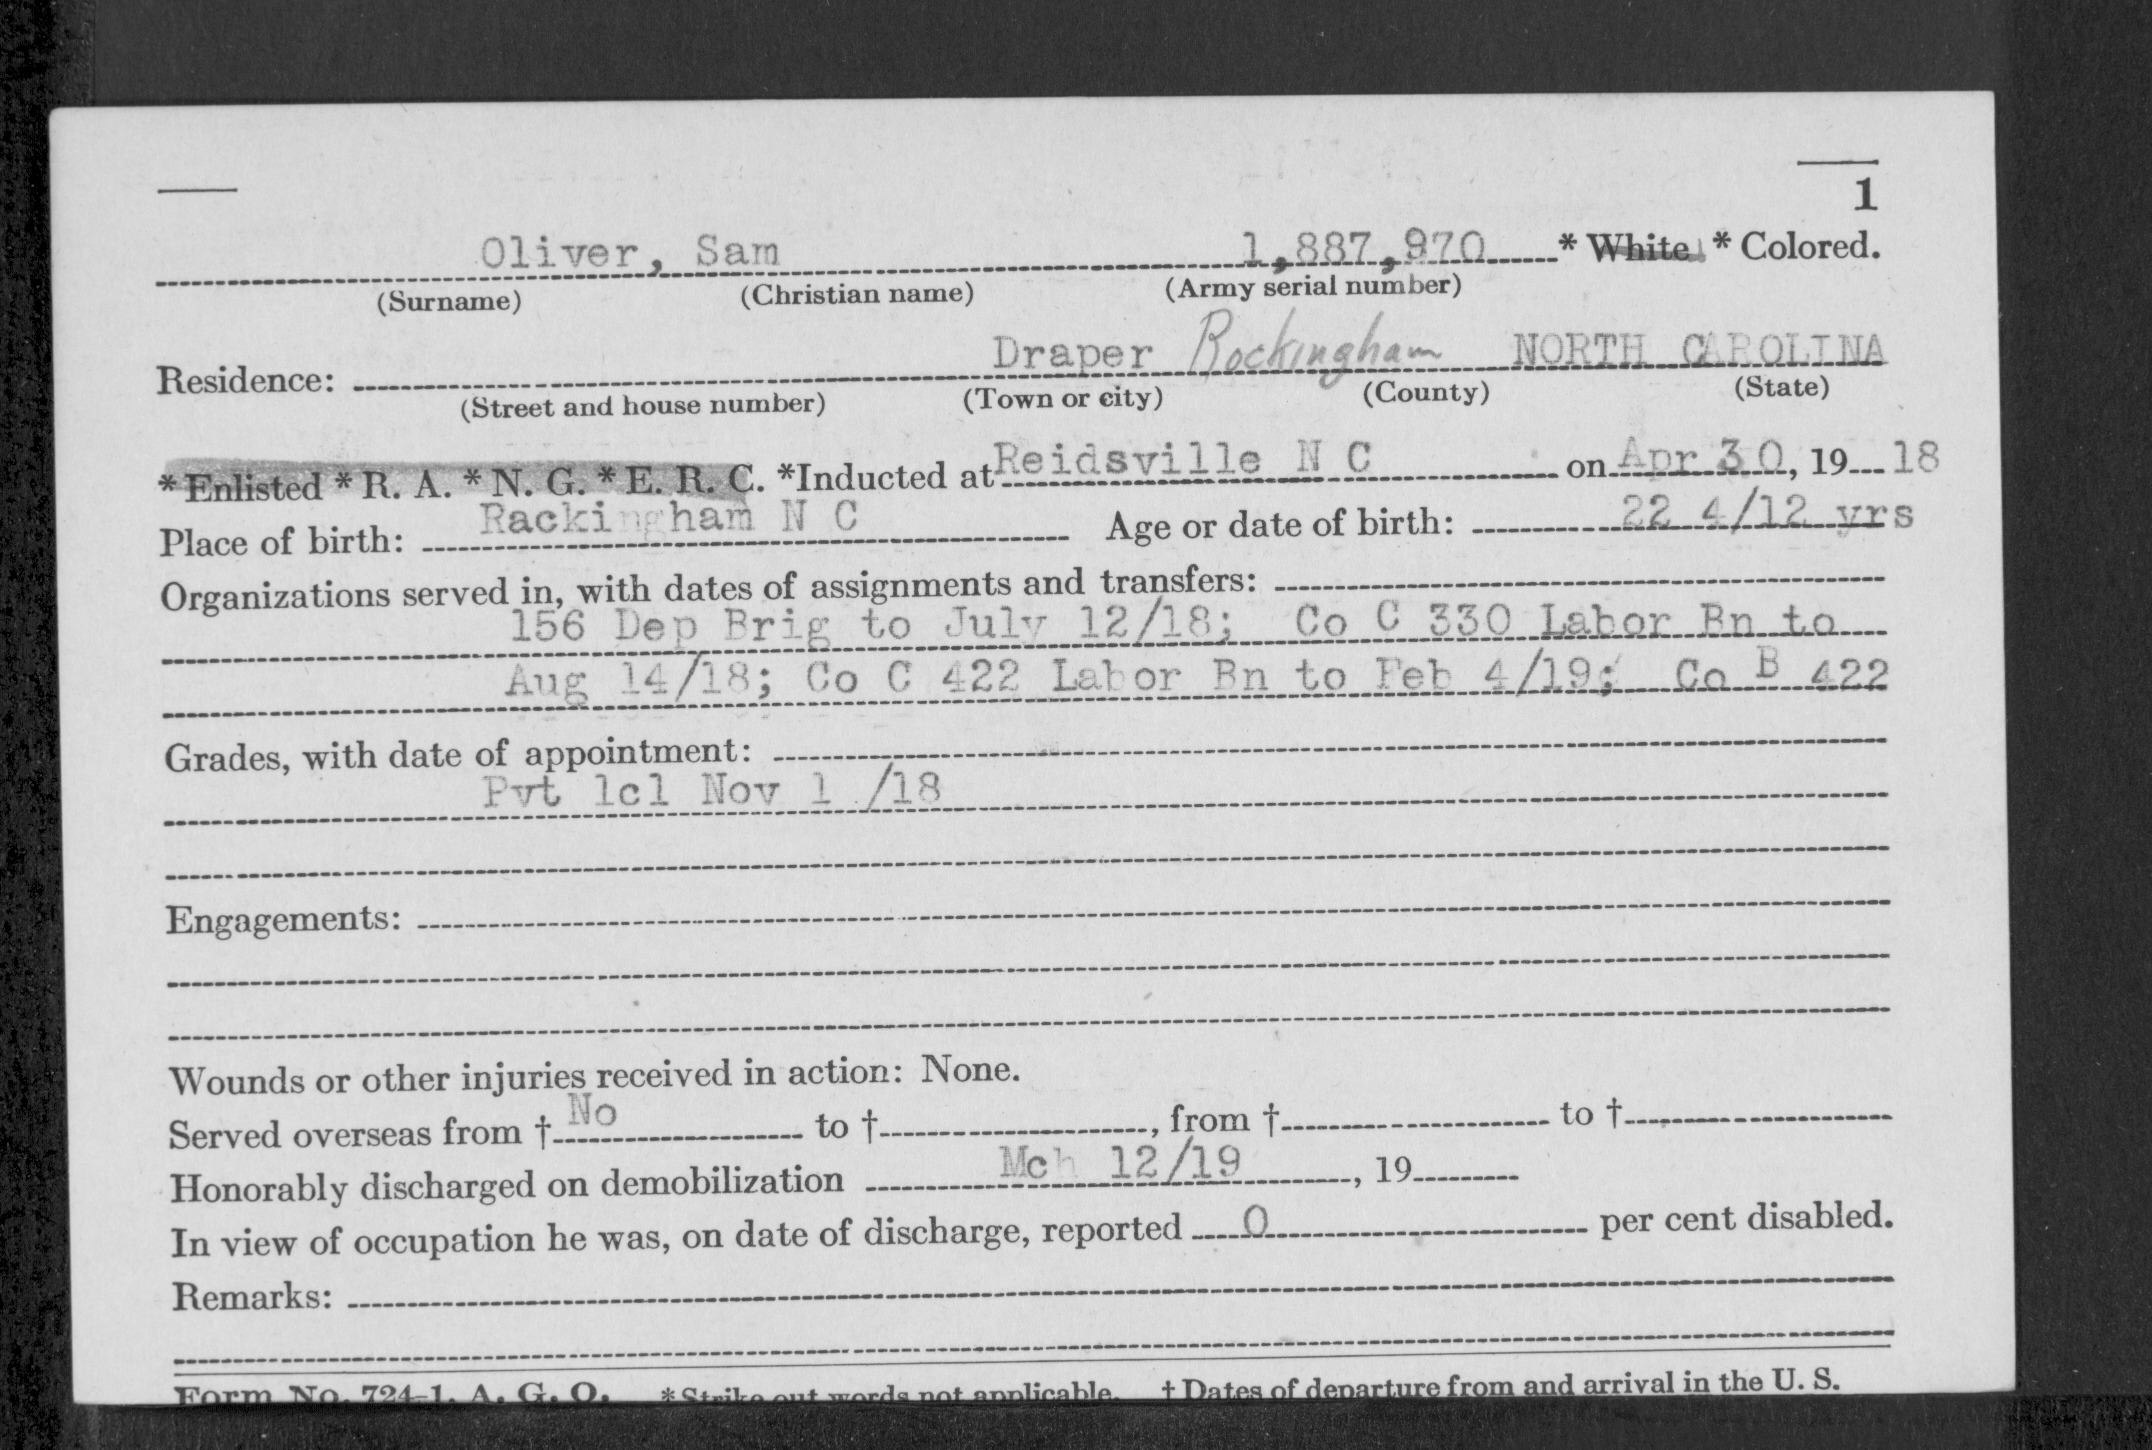 1
Oliver, Sam 1,887,970 * White * Colored.
(Surname) (Christian name) (Army serial number)
Residence: Draper Rockingham NORTH CAROLINA
(Street and house number) (Town or city) (County) (State)
*Enlisted *R. A. *N. G. *E. R. C. *Inducted at Reidsville N C on Apr 30, 19 18
Place of birth: Rackingham N C Age or date of birth: 22 4/12 yrs
Organizations served in, with dates of assignments and transfers:
156 Dep Brig to July 12/18; Co C 330 Labor Bn to
Aug 14/18; Co C 422 Labor Bn to Feb 4/19; Co B 422
Grades, with date of appointment:
Pvt 1cl Nov 1 /18
Engagements:
Wounds or other injuries received in action: None.
Served overseas from † No to †, from † to †
Honorably discharged on demobilization Mch 12/19, 19
In view of occupation he was, on date of discharge, reported 0 per cent disabled.
Remarks:
Form No. 724-1, A. G. O. *Strike out words not applicable. † Dates of departure from and arrival in the U. S.